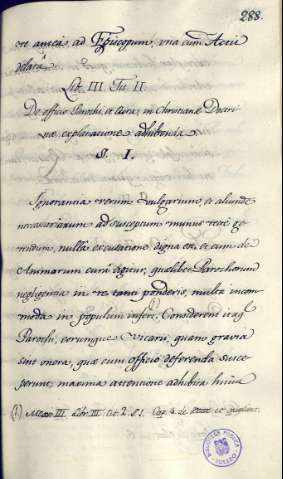 288.
ore antea, ad Episcopum, una cum Actis
delata.
Lib. III. Tit. II.
De officio Parochi, et cura, in Christianæ Doctri
næ explanatione adhibenda
§. I.
Ignorantia rerum vulgarium, et aliunde
necessariarum ad susceptum munus recte ge-
rendum, nulla excusatione digna est, et cum de
Animarum cura agitur, quælibet Parochorum
negligentia in re tanti ponderis, multa incom
moda in populum infert. Considerent itaq.
Parochi, eorumque Vicarii, quam gravia
sint onera, quæ cum officio deferenda susce
perunt, maxima attentione adhibita huius
(1) Mexic. III. Libr. III. tit. 2. § 1. Cap. 4. de
BIBLIOTECA PUBLICA
TOLEDO